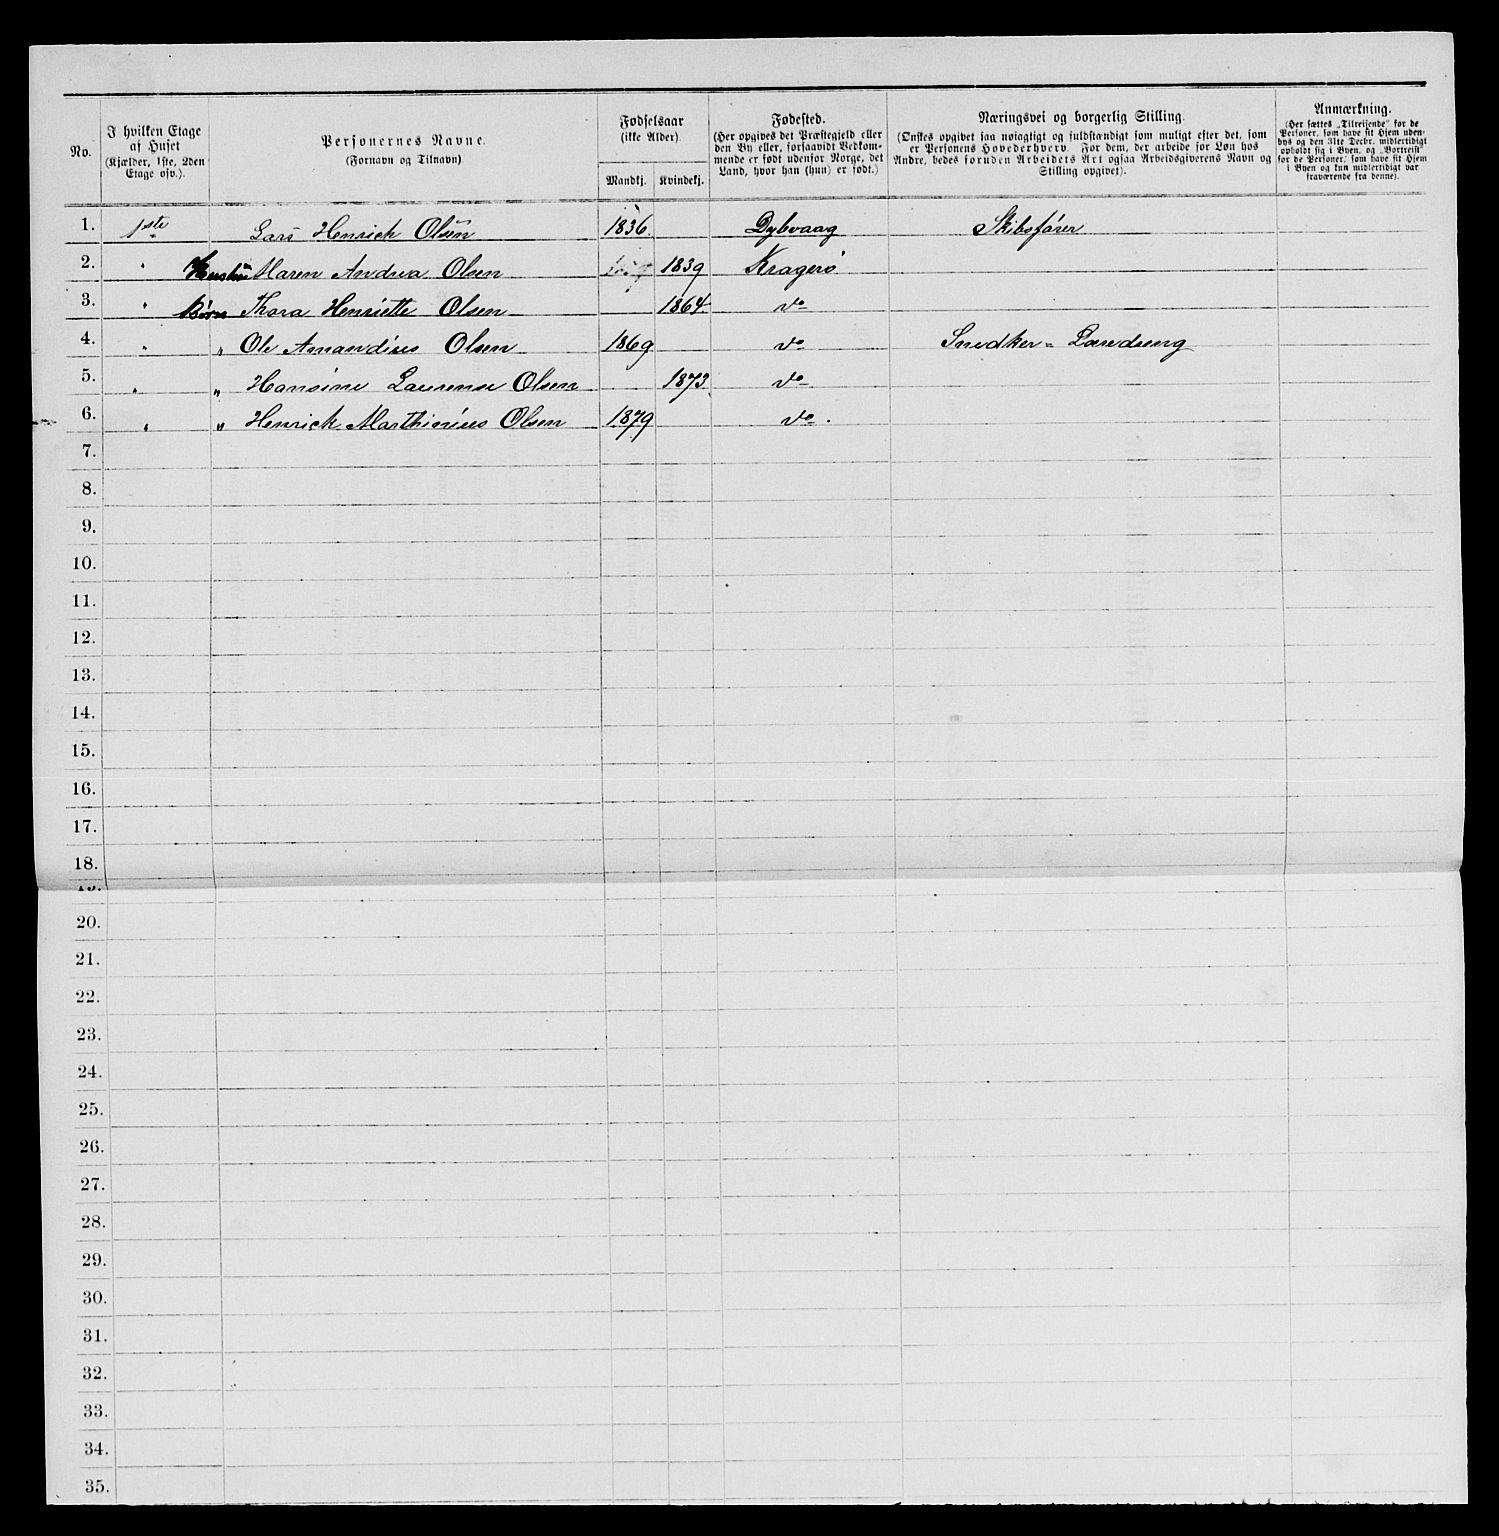 No. | I hvilken Etage af Huset (Kjælder, 1ste, 2den Etage osv.) | Personernes Navne. (Fornavn og Tilnavn) | Fødselsaar (ikke Alder) Mandkj. | Kvindekj. | Fødested. (Her opgives det Præstegjeld eller den By eller, forsaavidt Vedkommende er født udenfor Norge, det Land, hvor han (hun) er født.) | Næringsvei og borgerlig Stilling. (Ønskes opgivet saa nøiagtigt og fuldstændigt som muligt efter det, som er Personens Hovederhverv. For dem, der arbeide for Løn hos Andre, bedes foruden Arbeidets Art ogsaa Arbeidsgiverens Navn og Stilling opgivet). | Anmærkning. (Her sættes „Tilreisende" for de Personer, som have sit Hjem udenbys og den 31te Decbr. midlertidigt opholdt sig i Byen, og „Bortreist" for de Personer, som have sit Hjem i Byen og kun midlertidigt var fraværende fra denne).
1. 1ste Lars Henrich Olsen 1836 Dybvaag Skibsfører
2. " Hustru Maren Andrea Olsen 1839 Kragerö
3. " Börn Thora Henriette Olsen 1864 do
4. " " Ole Amandius Olsen 1869 do Snedker = Læredreng
5. " " Hansine Laurense Olsen 1873 do
6. " " Henrick Marthinius Olsen 1879 do.
7.
8.
9.
10.
11.
12.
13.
14.
15.
16.
17.
18.
19.
20.
21.
22.
23.
24.
25.
26.
27.
28.
29.
30.
31.
32.
33.
34.
35.